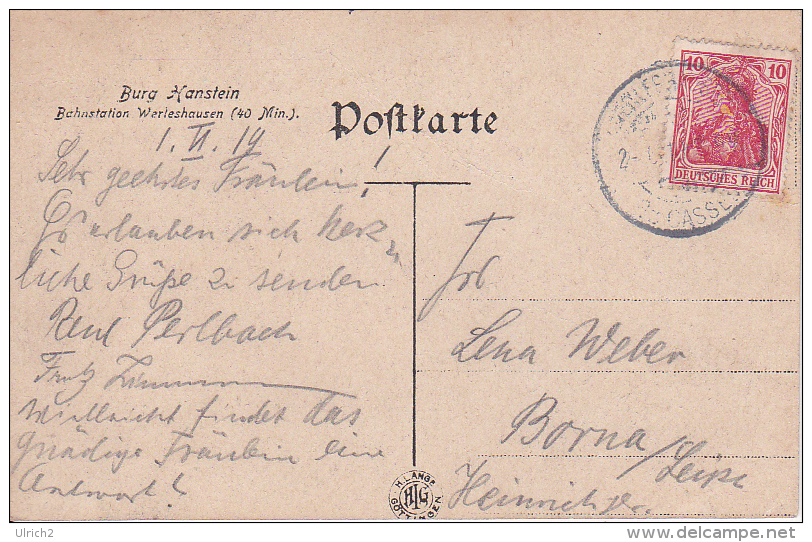 Burg Hanstein
Bahnstation Werleshausen (40 Min.).
Postkarte
1. VI. 19
Sehr geehrtes Fräulein!
Es erlauben sich herz
liche Grüße zu senden
Perlbach
Fritz
Vielleicht findet das
gnädige Fräulein eine
Antwort!
Frl
Lena Weber
Borna/Leipz
Heinrichstr.
10 10
DEUTSCHES REICH
CASSEL
H. LANGE
GÖTTINGEN
Ulrich2
http://www.delcampe.net